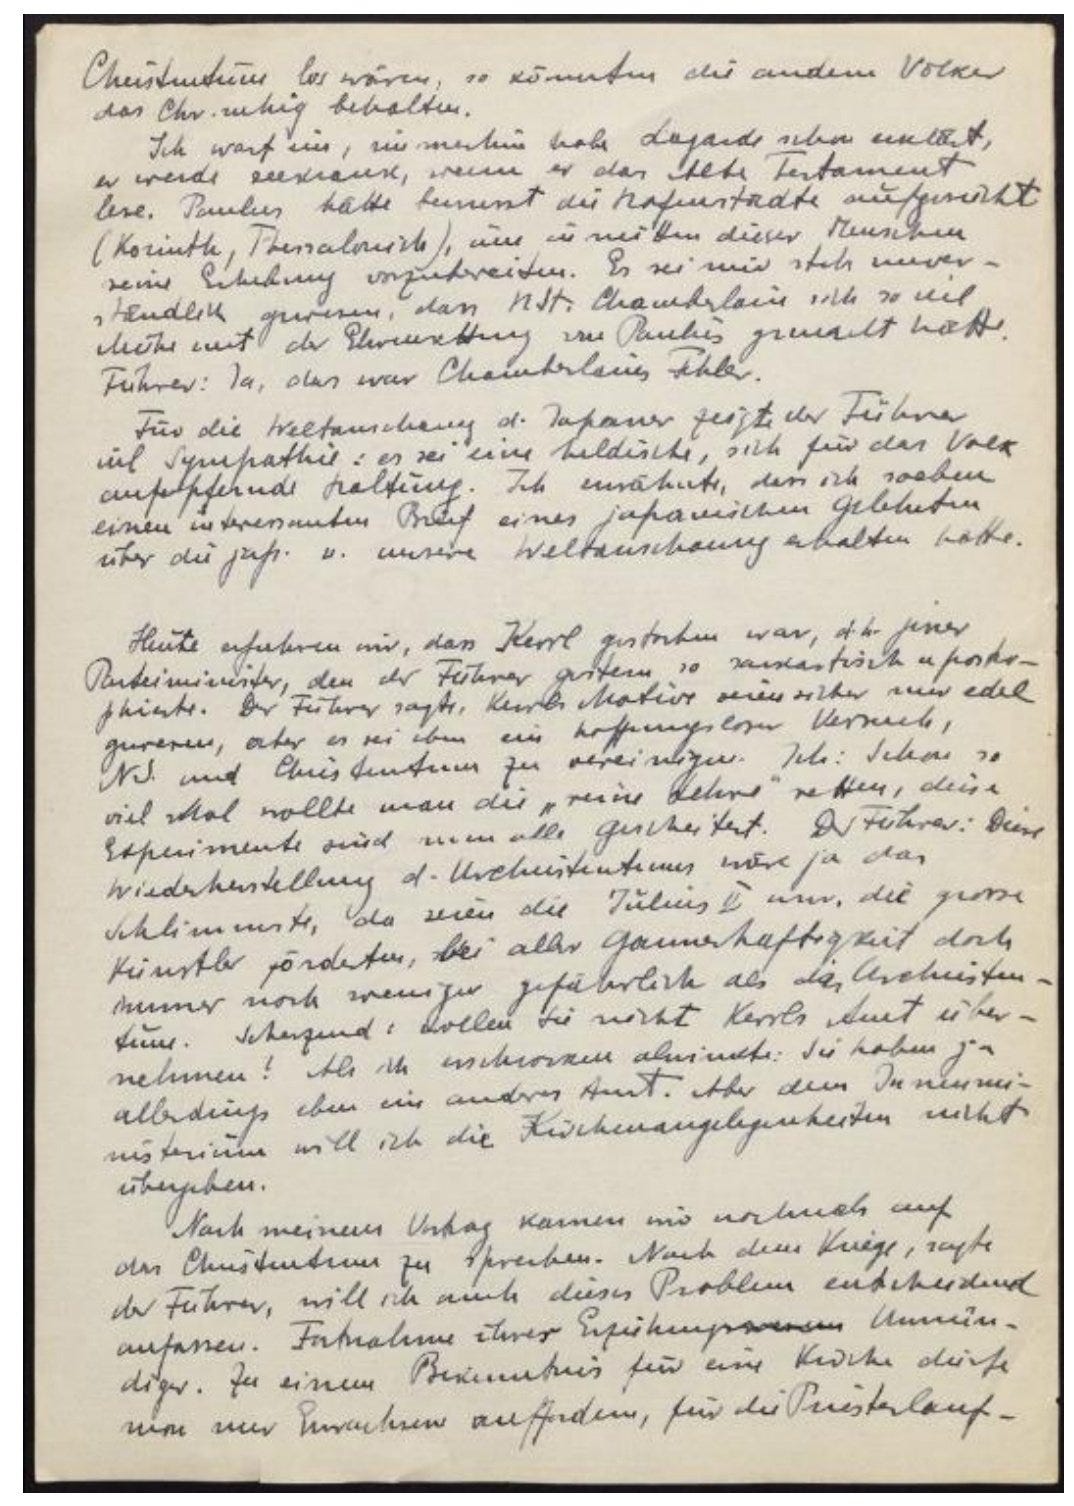 Christentum los wären, so könnten die andern Völker
das Chr. ruhig behalten.
Ich warf ein, immerhin habe Lagarde schon erklärt,
er werde seekrank, wenn er das Alte Testament
lese. Paulus hätte bewusst die Hafenstädte aufgesucht
(Korinth, Thessalonich), um inmitten dieser Menschen
seine Erhebung vorzubereiten. Es sei mir stets unver-
ständlich gewesen, dass H. St. Chamberlain sich so viel
Mühe mit der Ehrenrettung von Paulus gemacht hätte.
Führer: Ja, das war Chamberlains Fehler.
Für die Weltanschauung d. Japaner zeigte der Führer
viel Sympathie: es sei eine heldische, sich für das Volk
aufopfernde Haltung. Ich erwähnte, dass ich soeben
einen interessanten Brief eines japanischen Gelehrten
über die jap. u. unsere Weltanschauung erhalten hätte.
Heute erfuhren wir, dass Kerrl gestorben war, d.h. jener
Parteiminister, den der Führer gestern so sarkastisch apostro-
phierte. Der Führer sagte, Kerrls Motive seien sicher nur edel
gewesen, aber es sei eben ein hoffnungsloser Versuch,
N.S. und Christentum zu vereinigen. Ich: Schon so
viel Mal wollte man die „reine Lehre" retten, diese
Experimente sind nun alle gescheitert. Der Führer: Diese
Wiederherstellung d. Urchristentums wäre ja das
Schlimmste, da seien die Julius II usw., die grosse
Künstler förderten, bei aller Gaunerhaftigkeit doch
immer noch weniger gefährlich als das Urchristen-
tum. Scherzend: Wollen Sie nicht Kerrls Amt über-
nehmen! Als ich erschrocken abwinkte: Sie haben ja
allerdings eben ein anderes Amt. Aber dem Innenmi-
nisterium will ich die Kirchenangelegenheiten nicht
übergeben.
Nach meinem Vortrag kamen wir nochmals auf
das Christentum zu sprechen. Nach dem Kriege, sagte
der Führer, will ich auch dieses Problem entscheidend
anfassen. Fortnahme ihrer Erziehung Unmün-
diger. Zu einem Bekenntnis für eine Kirche dürfe
man nur Erwachsene auffordern, für die Priesterlauf-